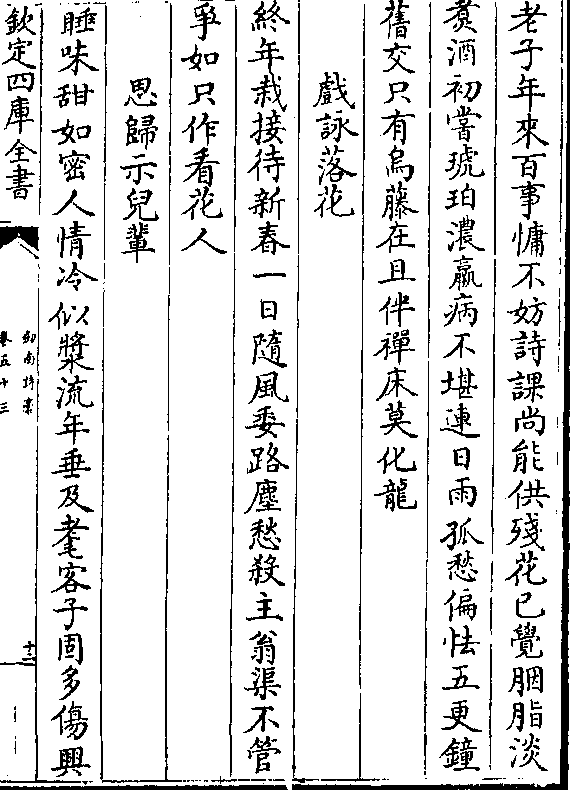 老子年來百事慵不妨詩課尚能供殘花已覺胭脂淡
煑酒初嘗琥珀濃羸病不堪連日雨孤愁偏怯五更鐘
舊交只有烏藤在且伴禪床莫化龍
戲詠落花
終年栽接待新春一日隨風委路塵愁殺主翁渠不管
爭如只作看花人
思歸示兒輩
睡味甜如密人情冷似漿流年垂及耄客子固多傷興
欽定四庫全書
劍南詩稾
卷五十三
十二